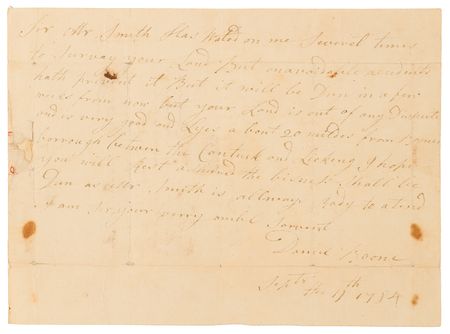 Sir Mr Smith Has Wated on me Severel times
to Survay your Land But unavoidable acudents
hath prevent it But it will be Dun in a few
weeks from now but your Land is out of any Dispute
and is very good and Lyes a bout 20 miles from Bones
borrough between the Cantuck and Licking I hope
you will Rest the bisness Shall be
Dun as Mr Smith is allways Redy to atend
I am Sir your verry omble Servent
Daniel Boone
Septr the 11th 1784